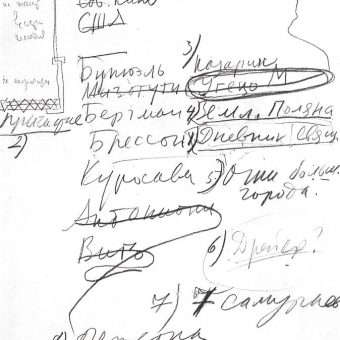 США
3)
Бунюэль Назарин
Мизогути Угецу М
Бергман 4) Земл. Поляна
2)
Брессон 1) Дневник свящ.
Куросава 5) Огни больш.
города.
Антониони
Виго
6) Дрейер?
7) 7 самураев
Персона